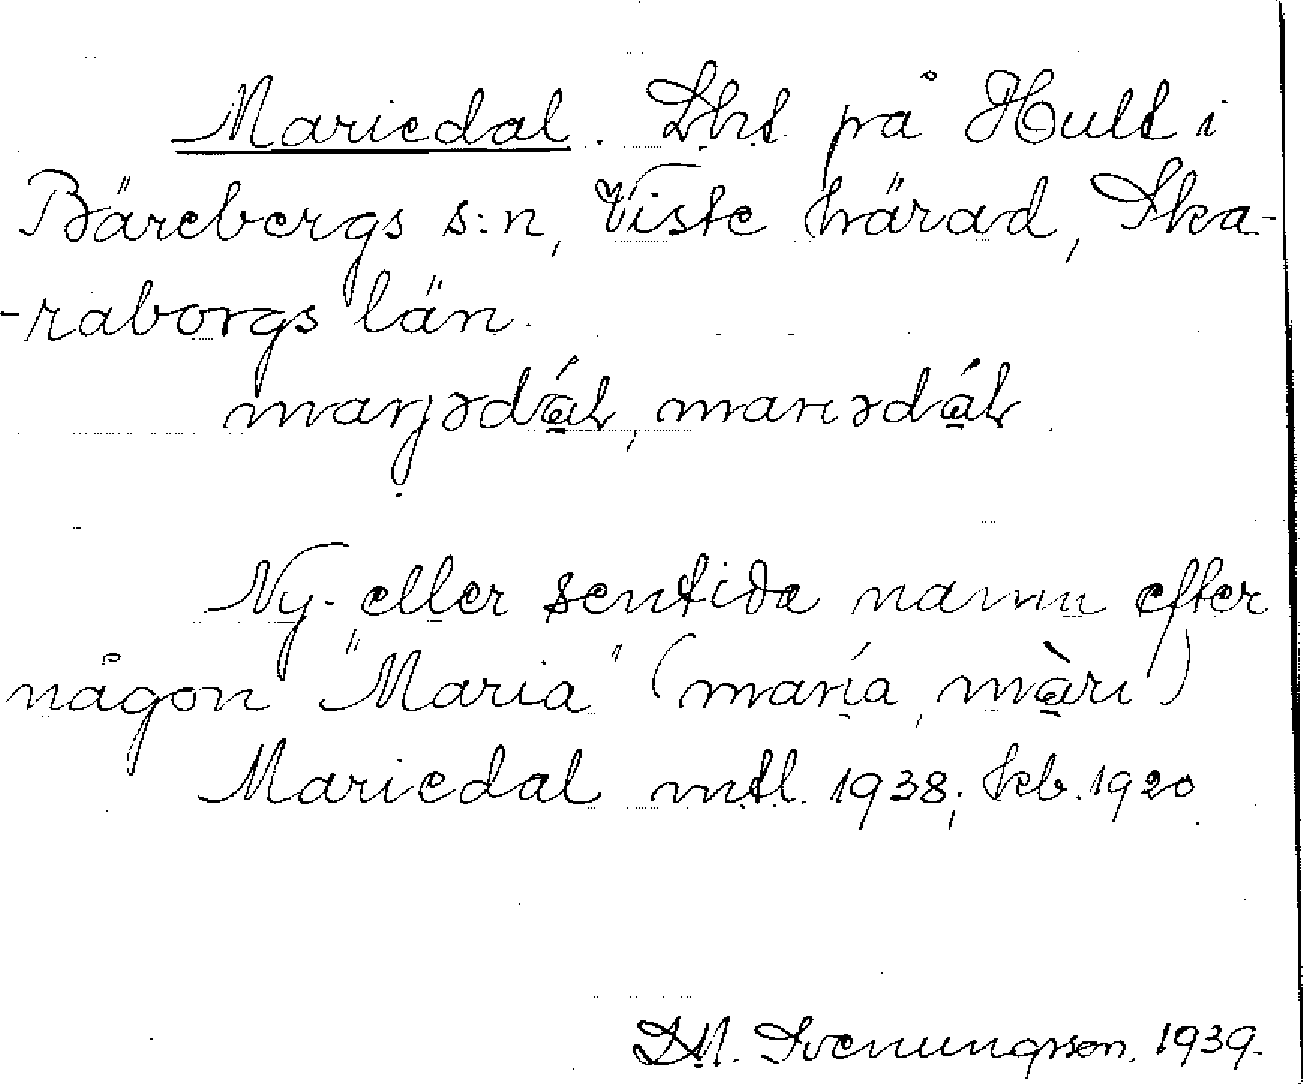 Mariedal. Lht på Hult i
Bärebergs s:n, Viste härad, Ska-
-raborgs län.
marjədál, mariədál.
Ny- eller sentida namn efter
någon "Maria" (maría, màri)
Mariedal mtl. 1938; kb. 1920.
Svenungsson. 1939.